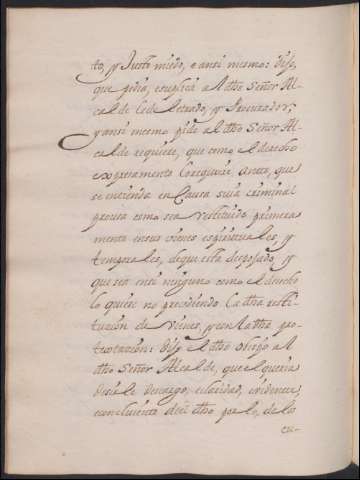 to, y Justo miedo, e ansi mesmo: dijo,
que pidia, esuplica al dho Señor Al-
calde le de letrado, y Procurador;
y ansi mesmo pide al dho Señor Al-
calde requiere, que como el derecho
expresamente lo requiere, antes, que
se entienda en Causa suia criminal
provea como sea restituido primera
mente en sus vienes espirituales, y
temporales, de que esta despojado, y
que sea ensi ninguno como el derecho
lo quiere no precediendo la dha resti-
tuzion de vienes, y con la dha pro-
textazion: dijo el dho obispo al
dho Señor Alcalde, que el queria
decir le descargo, e claridad, evidente,
e concluiente del dho por lo, de lo
cu-